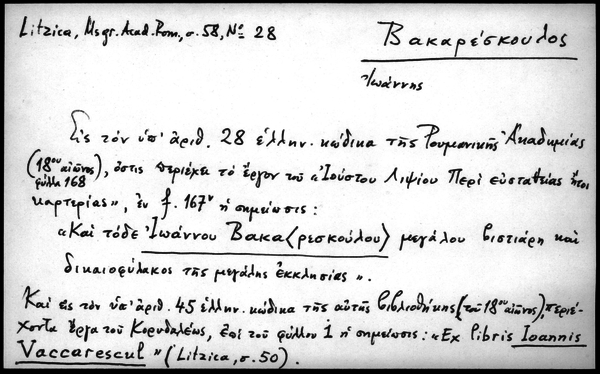 Litzica, Msgr. Acad. Rom., σ. 58, Nº 28
Βακαρέσκουλος
Ἰωάννης
Εἰς τὸν ὑπ' ἀριθ. 28 ἑλλην. κώδικα τῆς Ρουμανικῆς Ἀκαδημίας
(18ου αἰῶνος, φύλλα 168), ὅστις περιέχει τὸ ἔργον τοῦ «Ἰούστου Λιψίου Περὶ εὐσταθείας ἤτοι
καρτερίας», ἐν f. 167v ἡ σημείωσις:
«Καὶ τόδε Ἰωάννου Βακα<ρεσκούλου> μεγάλου βιστιάρη καὶ
δικαιοφύλακος τῆς μεγάλης ἐκκλησίας».
Καὶ εἰς τὸν ὑπ' ἀριθ. 45 ἑλλην. κώδικα τῆς αὐτῆς βιβλιοθήκης (τοῦ 18ου αἰῶνος), περιέ-
χοντα ἔργα τοῦ Κορυδαλέως, ἐπὶ τοῦ φύλλου 1 ἡ σημείωσις: «Ex libris Ioannis
Vaccarescul» (Litzica, σ. 50).